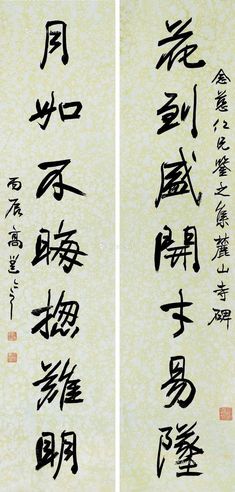 念慈仁兄鑒之集麓山寺碑
花到盛開才易墜
月如不晦揔難明
丙辰高邕